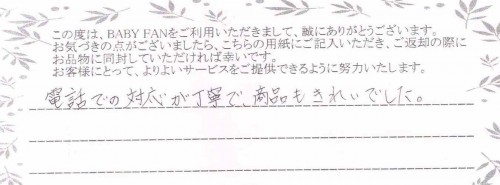 この度は、BABY FANをご利用いただきまして、誠にありがとうございます。
お気づきの点がございましたら、こちらの用紙にご記入いただき、ご返却の際に
お品物に同封していただければ幸いです。
お客様にとって、よりよいサービスをご提供できるように努力いたします。
電話での対応が丁寧で、商品もきれいでした。